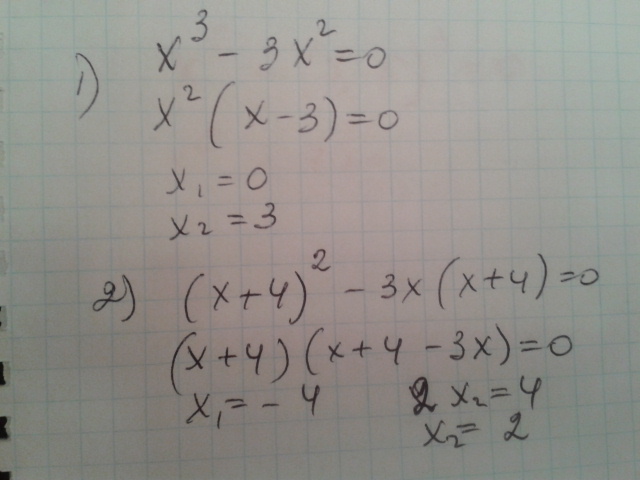 1) x³ - 3x² = 0
x² (x - 3) = 0
x₁ = 0
x₂ = 3
2) (x + 4)² - 3x (x + 4) = 0
(x + 4) (x + 4 - 3x) = 0
x₁ = - 4 2 x₂ = 4
x₂ = 2